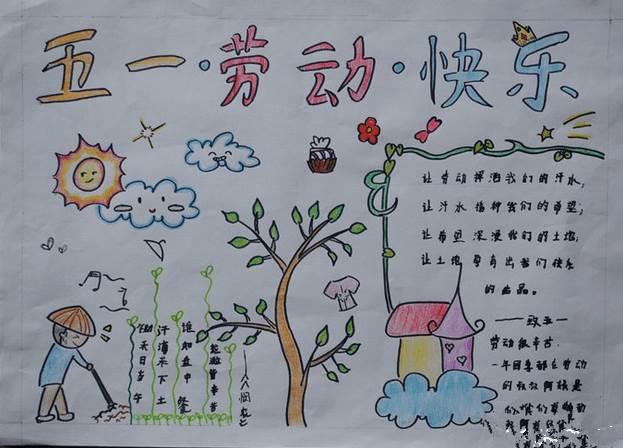 五一·劳动·快乐
让劳动挥洒我们的汗水,
让汗水播种我们的希望;
让希望深浸我们的土地;
让土地孕育出我们快乐
的
品。
——致五一
劳动很辛苦:
一年四季都在劳动
的叔叔阿姨是
锄禾日当午
汗滴禾下土
谁知盘中餐
粒粒皆辛苦